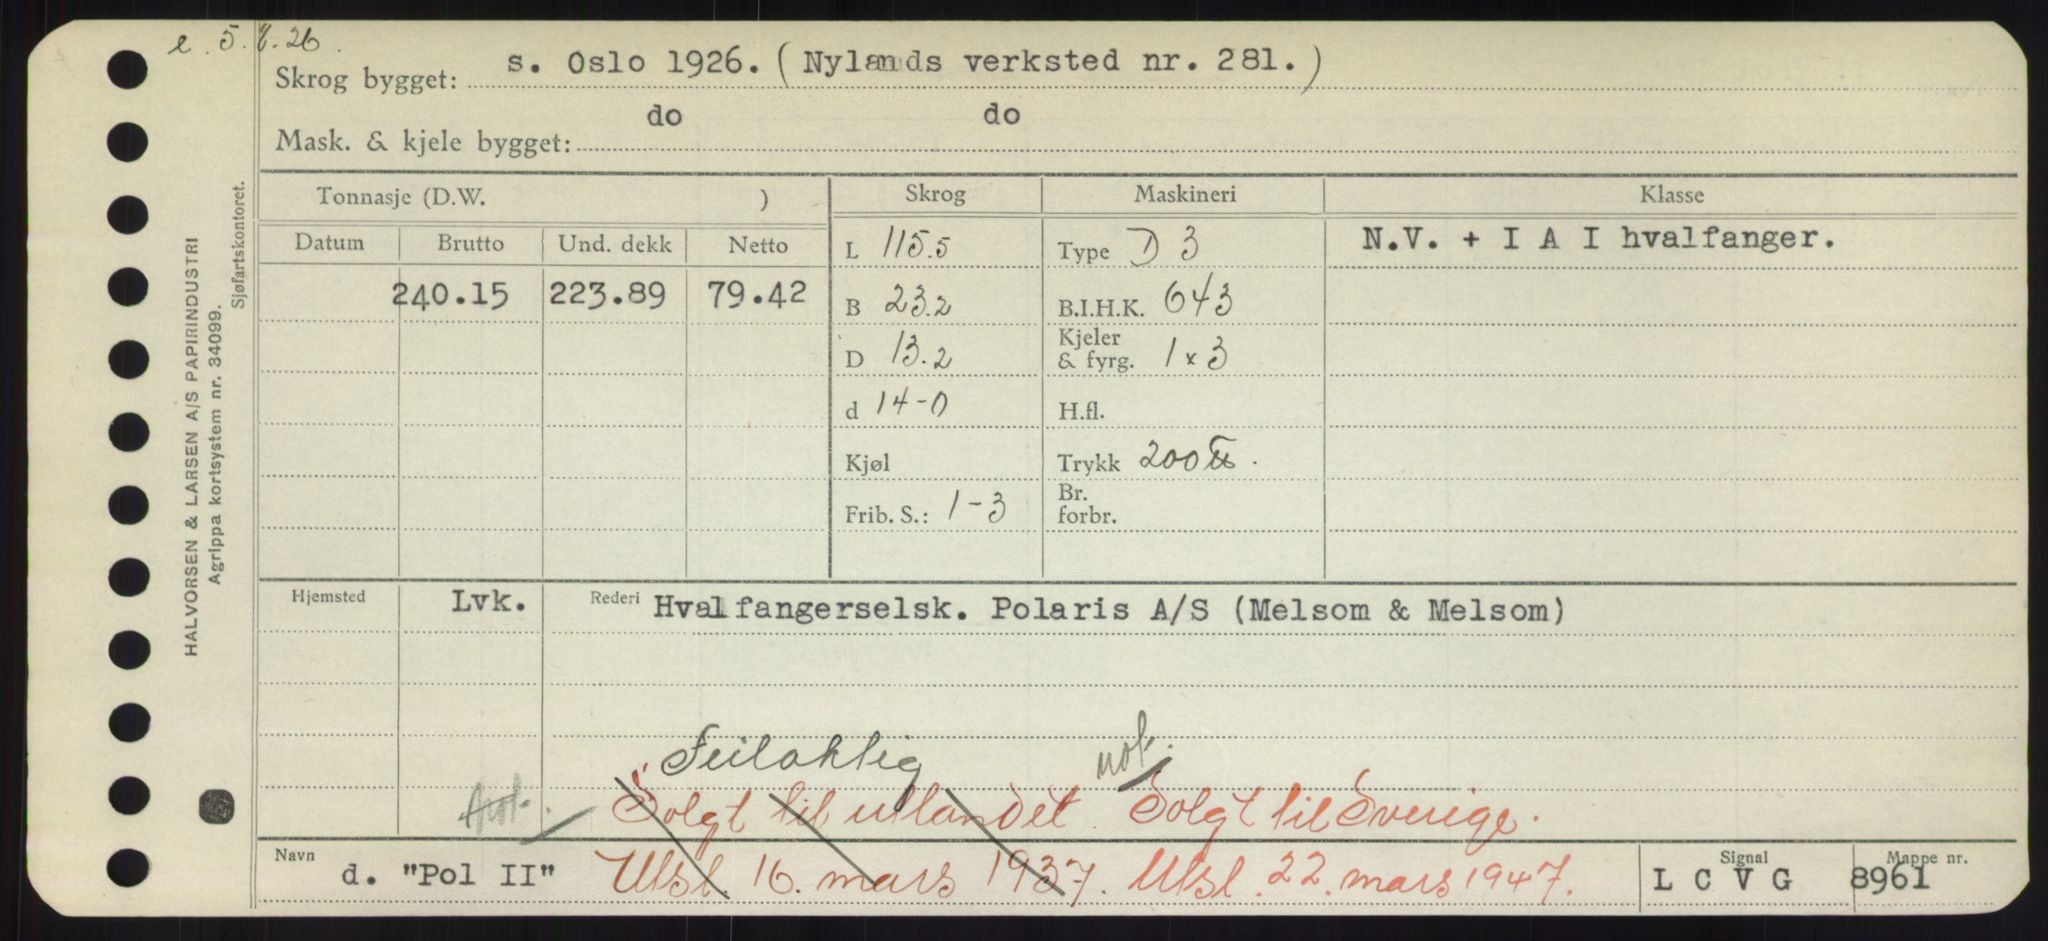 e. 5.8.26.
Skrog bygget: s. Oslo 1926. (Nylands verksted nr. 281.)
do do
Mask. & kjele bygget:
Tonnasje (D.W. ) Skrog Maskineri Klasse
Datum Brutto Und. dekk Netto
L 115.5 Type D 3 N.V. + I A I hvalfanger.
240.15 223.89 79.42 B 23.2 B.I.H.K. 643
D 13.2 Kjeler & fyrg. 1 x 3
d 14-0 H.fl.
Kjøl Trykk 200 .
Frib. S.: 1-3 Br. forbr.
Hjemsted Lvk. Rederi Hvalfangerselsk. Polaris A/S (Melsom & Melsom)
Feilaktig not.
Not. Solgt til utlandet. Solgt til Sverige.
Navn d. "Pol II" Utsl. 16. mars 1937. Utsl. 22. mars 1947. Signal L C V G Mappe nr. 8961
HALVORSEN & LARSEN A/S PAPIRINDUSTRI
Agrippa kortsystem nr. 34099.
Sjøfartskontoret.